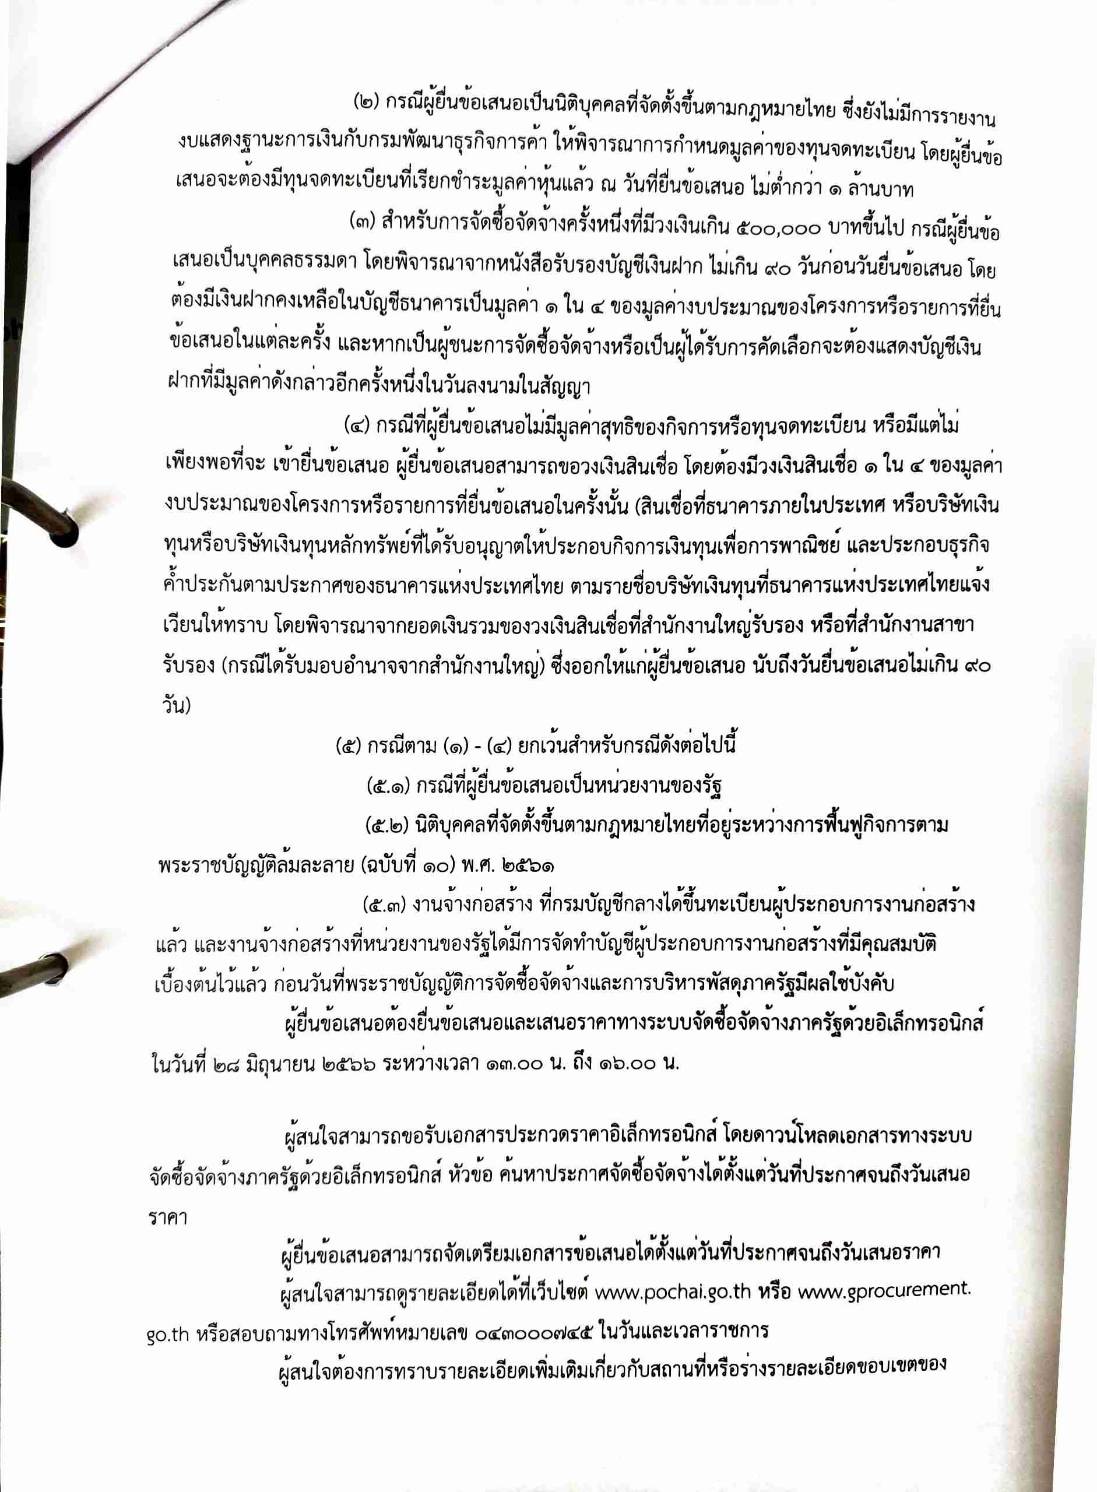 (๒) กรณีผู้ยื่นข้อเสนอเป็นนิติบุคคลที่จัดตั้งขึ้นตามกฎหมายไทย ซึ่งยังไม่มีการรายงาน
งบแสดงฐานะการเงินกับกรมพัฒนาธุรกิจการค้า ให้พิจารณาการกำหนดมูลค่าของทุนจดทะเบียน โดยผู้ยื่นข้อ
เสนอจะต้องมีทุนจดทะเบียนที่เรียกชำระมูลค่าหุ้นแล้ว ณ วันที่ยื่นข้อเสนอ ไม่ต่ำกว่า ๑ ล้านบาท
(๓) สำหรับการจัดซื้อจัดจ้างครั้งหนึ่งที่มีวงเงินเกิน ๕๐๐,๐๐๐ บาทขึ้นไป กรณีผู้ยื่นข้อ
เสนอเป็นบุคคลธรรมดา โดยพิจารณาจากหนังสือรับรองบัญชีเงินฝาก ไม่เกิน ๙๐ วันก่อนวันยื่นข้อเสนอ โดย
ต้องมีเงินฝากคงเหลือในบัญชีธนาคารเป็นมูลค่า ๑ ใน ๔ ของมูลค่างบประมาณของโครงการหรือรายการที่ยื่น
ข้อเสนอในแต่ละครั้ง และหากเป็นผู้ชนะการจัดซื้อจัดจ้างหรือเป็นผู้ได้รับการคัดเลือกจะต้องแสดงบัญชีเงิน
ฝากที่มีมูลค่าดังกล่าวอีกครั้งหนึ่งในวันลงนามในสัญญา
(๔) กรณีที่ผู้ยื่นข้อเสนอไม่มีมูลค่าสุทธิของกิจการหรือทุนจดทะเบียน หรือมีแต่ไม่
เพียงพอที่จะ เข้ายื่นข้อเสนอ ผู้ยื่นข้อเสนอสามารถขอวงเงินสินเชื่อ โดยต้องมีวงเงินสินเชื่อ ๑ ใน ๔ ของมูลค่า
งบประมาณของโครงการหรือรายการที่ยื่นข้อเสนอในครั้งนั้น (สินเชื่อที่ธนาคารภายในประเทศ หรือบริษัทเงิน
ทุนหรือบริษัทเงินทุนหลักทรัพย์ที่ได้รับอนุญาตให้ประกอบกิจการเงินทุนเพื่อการพาณิชย์ และประกอบธุรกิจ
ค้ำประกันตามประกาศของธนาคารแห่งประเทศไทย ตามรายชื่อบริษัทเงินทุนที่ธนาคารแห่งประเทศไทยแจ้ง
เวียนให้ทราบ โดยพิจารณาจากยอดเงินรวมของวงเงินสินเชื่อที่สำนักงานใหญ่รับรอง หรือที่สำนักงานสาขา
รับรอง (กรณีได้รับมอบอำนาจจากสำนักงานใหญ่) ซึ่งออกให้แก่ผู้ยื่นข้อเสนอ นับถึงวันยื่นข้อเสนอไม่เกิน ๙๐
วัน)
(๕) กรณีตาม (๑) - (๔) ยกเว้นสำหรับกรณีดังต่อไปนี้
(๕.๑) กรณีที่ผู้ยื่นข้อเสนอเป็นหน่วยงานของรัฐ
(๕.๒) นิติบุคคลที่จัดตั้งขึ้นตามกฎหมายไทยที่อยู่ระหว่างการฟื้นฟูกิจการตาม
พระราชบัญญัติล้มละลาย (ฉบับที่ ๑๐) พ.ศ. ๒๕๖๑
(๕.๓) งานจ้างก่อสร้าง ที่กรมบัญชีกลางได้ขึ้นทะเบียนผู้ประกอบการงานก่อสร้าง
แล้ว และงานจ้างก่อสร้างที่หน่วยงานของรัฐได้มีการจัดทำบัญชีผู้ประกอบการงานก่อสร้างที่มีคุณสมบัติ
เบื้องต้นไว้แล้ว ก่อนวันที่พระราชบัญญัติการจัดซื้อจัดจ้างและการบริหารพัสดุภาครัฐมีผลใช้บังคับ
ผู้ยื่นข้อเสนอต้องยื่นข้อเสนอและเสนอราคาทางระบบจัดซื้อจัดจ้างภาครัฐด้วยอิเล็กทรอนิกส์
ในวันที่ ๒๘ มิถุนายน ๒๕๖๖ ระหว่างเวลา ๑๓.๐๐ น. ถึง ๑๖.๐๐ น.
ผู้สนใจสามารถขอรับเอกสารประกวดราคาอิเล็กทรอนิกส์ โดยดาวน์โหลดเอกสารทางระบบ
จัดซื้อจัดจ้างภาครัฐด้วยอิเล็กทรอนิกส์ หัวข้อ ค้นหาประกาศจัดซื้อจัดจ้างได้ตั้งแต่วันที่ประกาศจนถึงวันเสนอ
ราคา
ผู้ยื่นข้อเสนอสามารถจัดเตรียมเอกสารข้อเสนอได้ตั้งแต่วันที่ประกาศจนถึงวันเสนอราคา
ผู้สนใจสามารถดูรายละเอียดได้ที่เว็บไซต์ www.pochai.go.th หรือ www.gprocurement.
go.th หรือสอบถามทางโทรศัพท์หมายเลข ๐๔๓๐๐๐๗๔๕ ในวันและเวลาราชการ
ผู้สนใจต้องการทราบรายละเอียดเพิ่มเติมเกี่ยวกับสถานที่หรือร่างรายละเอียดขอบเขตของ